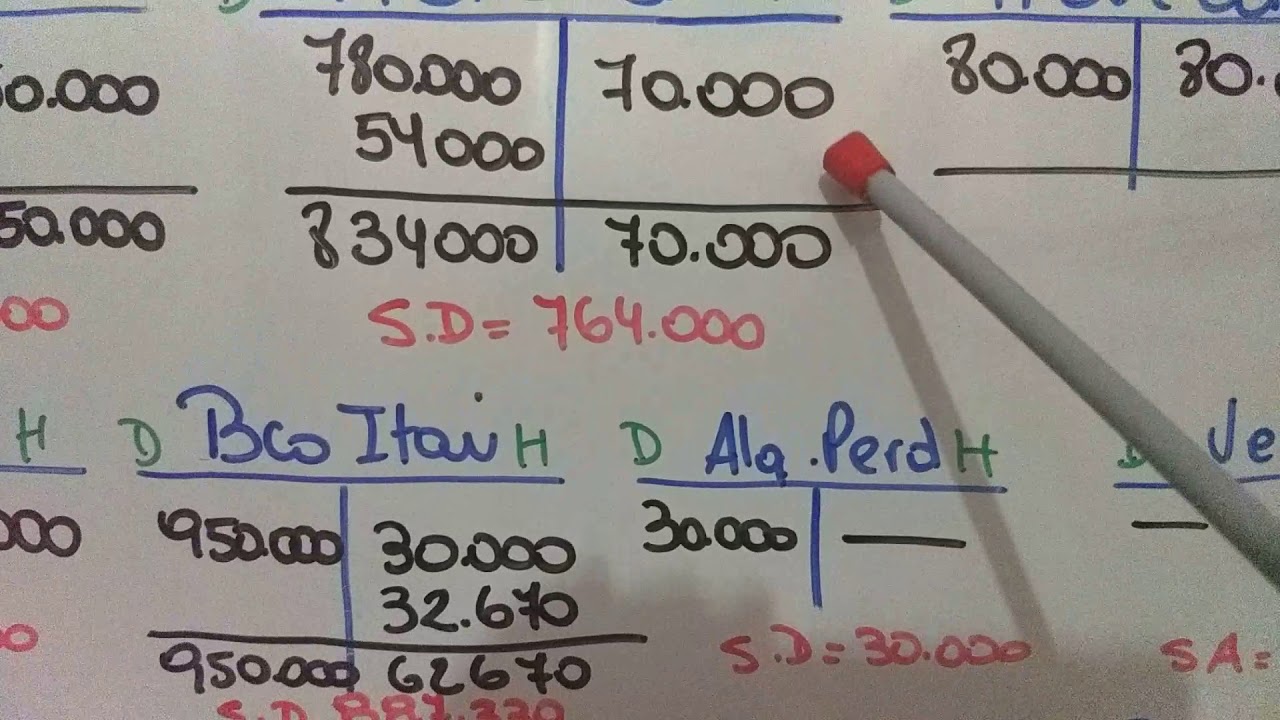 780.000 70.000 80.000
50.000 54000
834000 70.000
50.000
S.D = 764.000
00
H D Bco Itau H D Ala.Perd H D Ve
000 950.000 30.000 30.000 — —
32.670
950.000 62670
S.D = 30.000 SA =
S.D 887.330